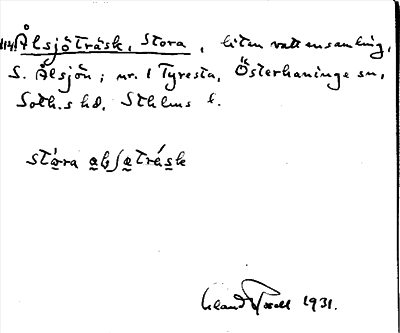 114 Ålsjöträsk, Stora, liten vattensamling,
S. Ålsjön; nr. 1 Tyresta, Österhaninge sn,
Soth.s hd, Sthlms l.
stóra alsjatrásk
1931.